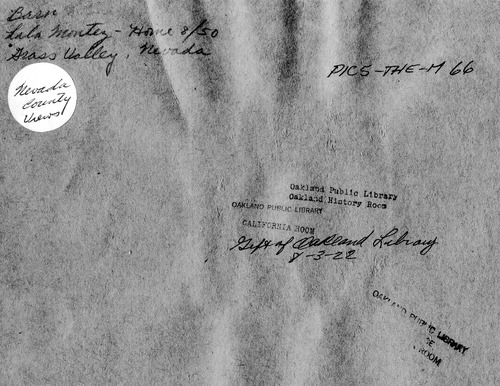 Barn
Lala Montez - Home 8/50
Grass Valley, Nevada
PICS-THE-M 66
Nevada
County
Views
Oakland Public Library
Oakland History Room
OAKLAND PUBLIC LIBRARY
CALIFORNIA ROOM
Gift of Oakland Library
8-3-22
OAKLAND PUBLIC LIBRARY
ROOM